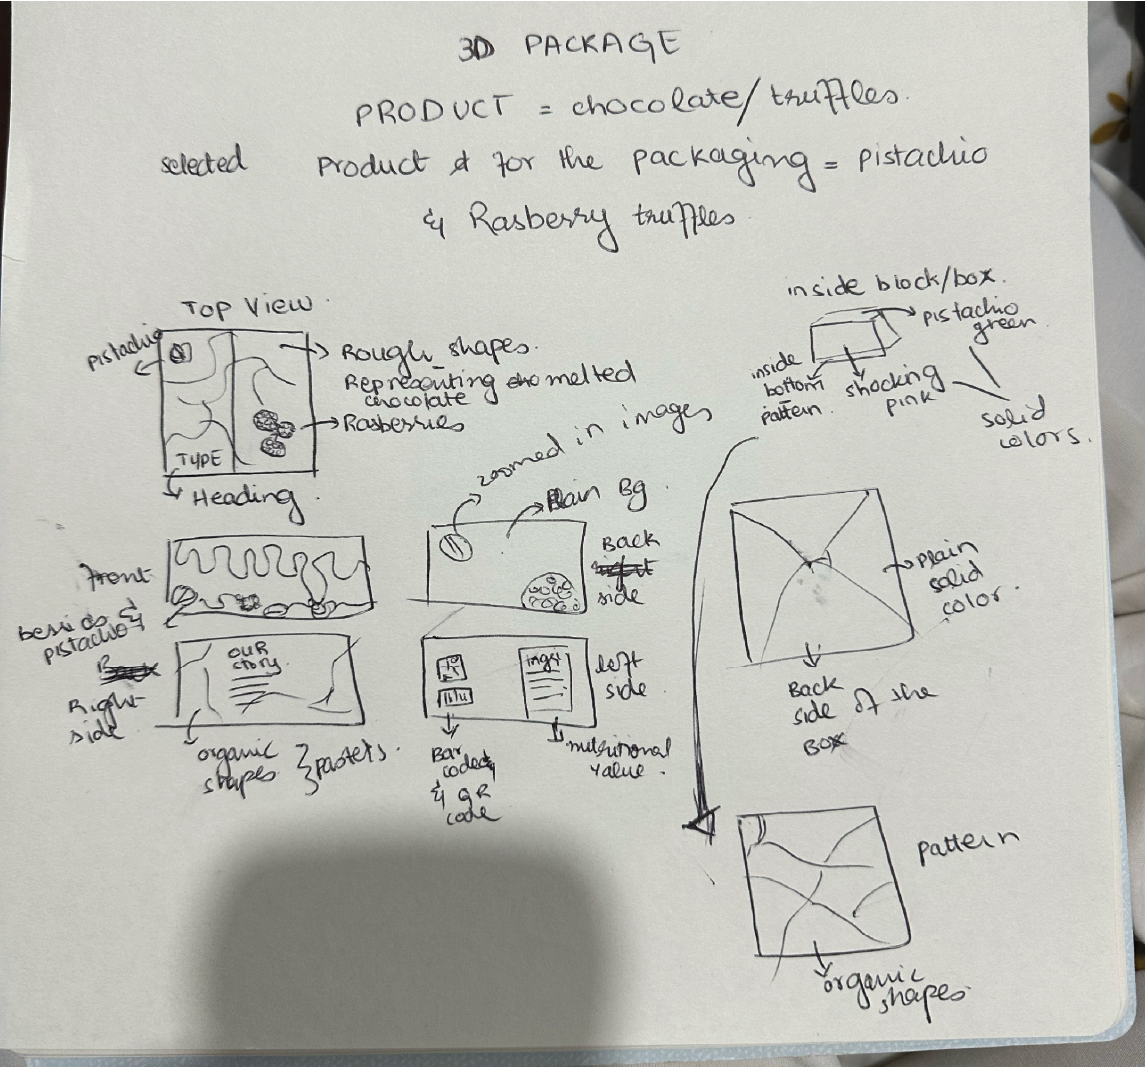 3D PACKAGE
PRODUCT = chocolate/truffles.
selected Product & for the packaging = pistachio
& Rasberry truffles
TOP VIEW.
Pistachio
Rough shapes.
Representing melted
chocolate
Rasberries
TYPE
Heading.
inside block/box.
pistachio
green
inside
bottom
pattern.
shocking
pink
solid
colors.
zoomed in images
Plain Bg.
front
Back
side
&
pistachio
Right-
side
OUR
story
organic
shapes } pastels.
ingri
left
side
Bar
codes
& QR
code
nutritional
value.
Plain
solid
color.
Back
side of the
BOX
Pattern
organic
shapes.